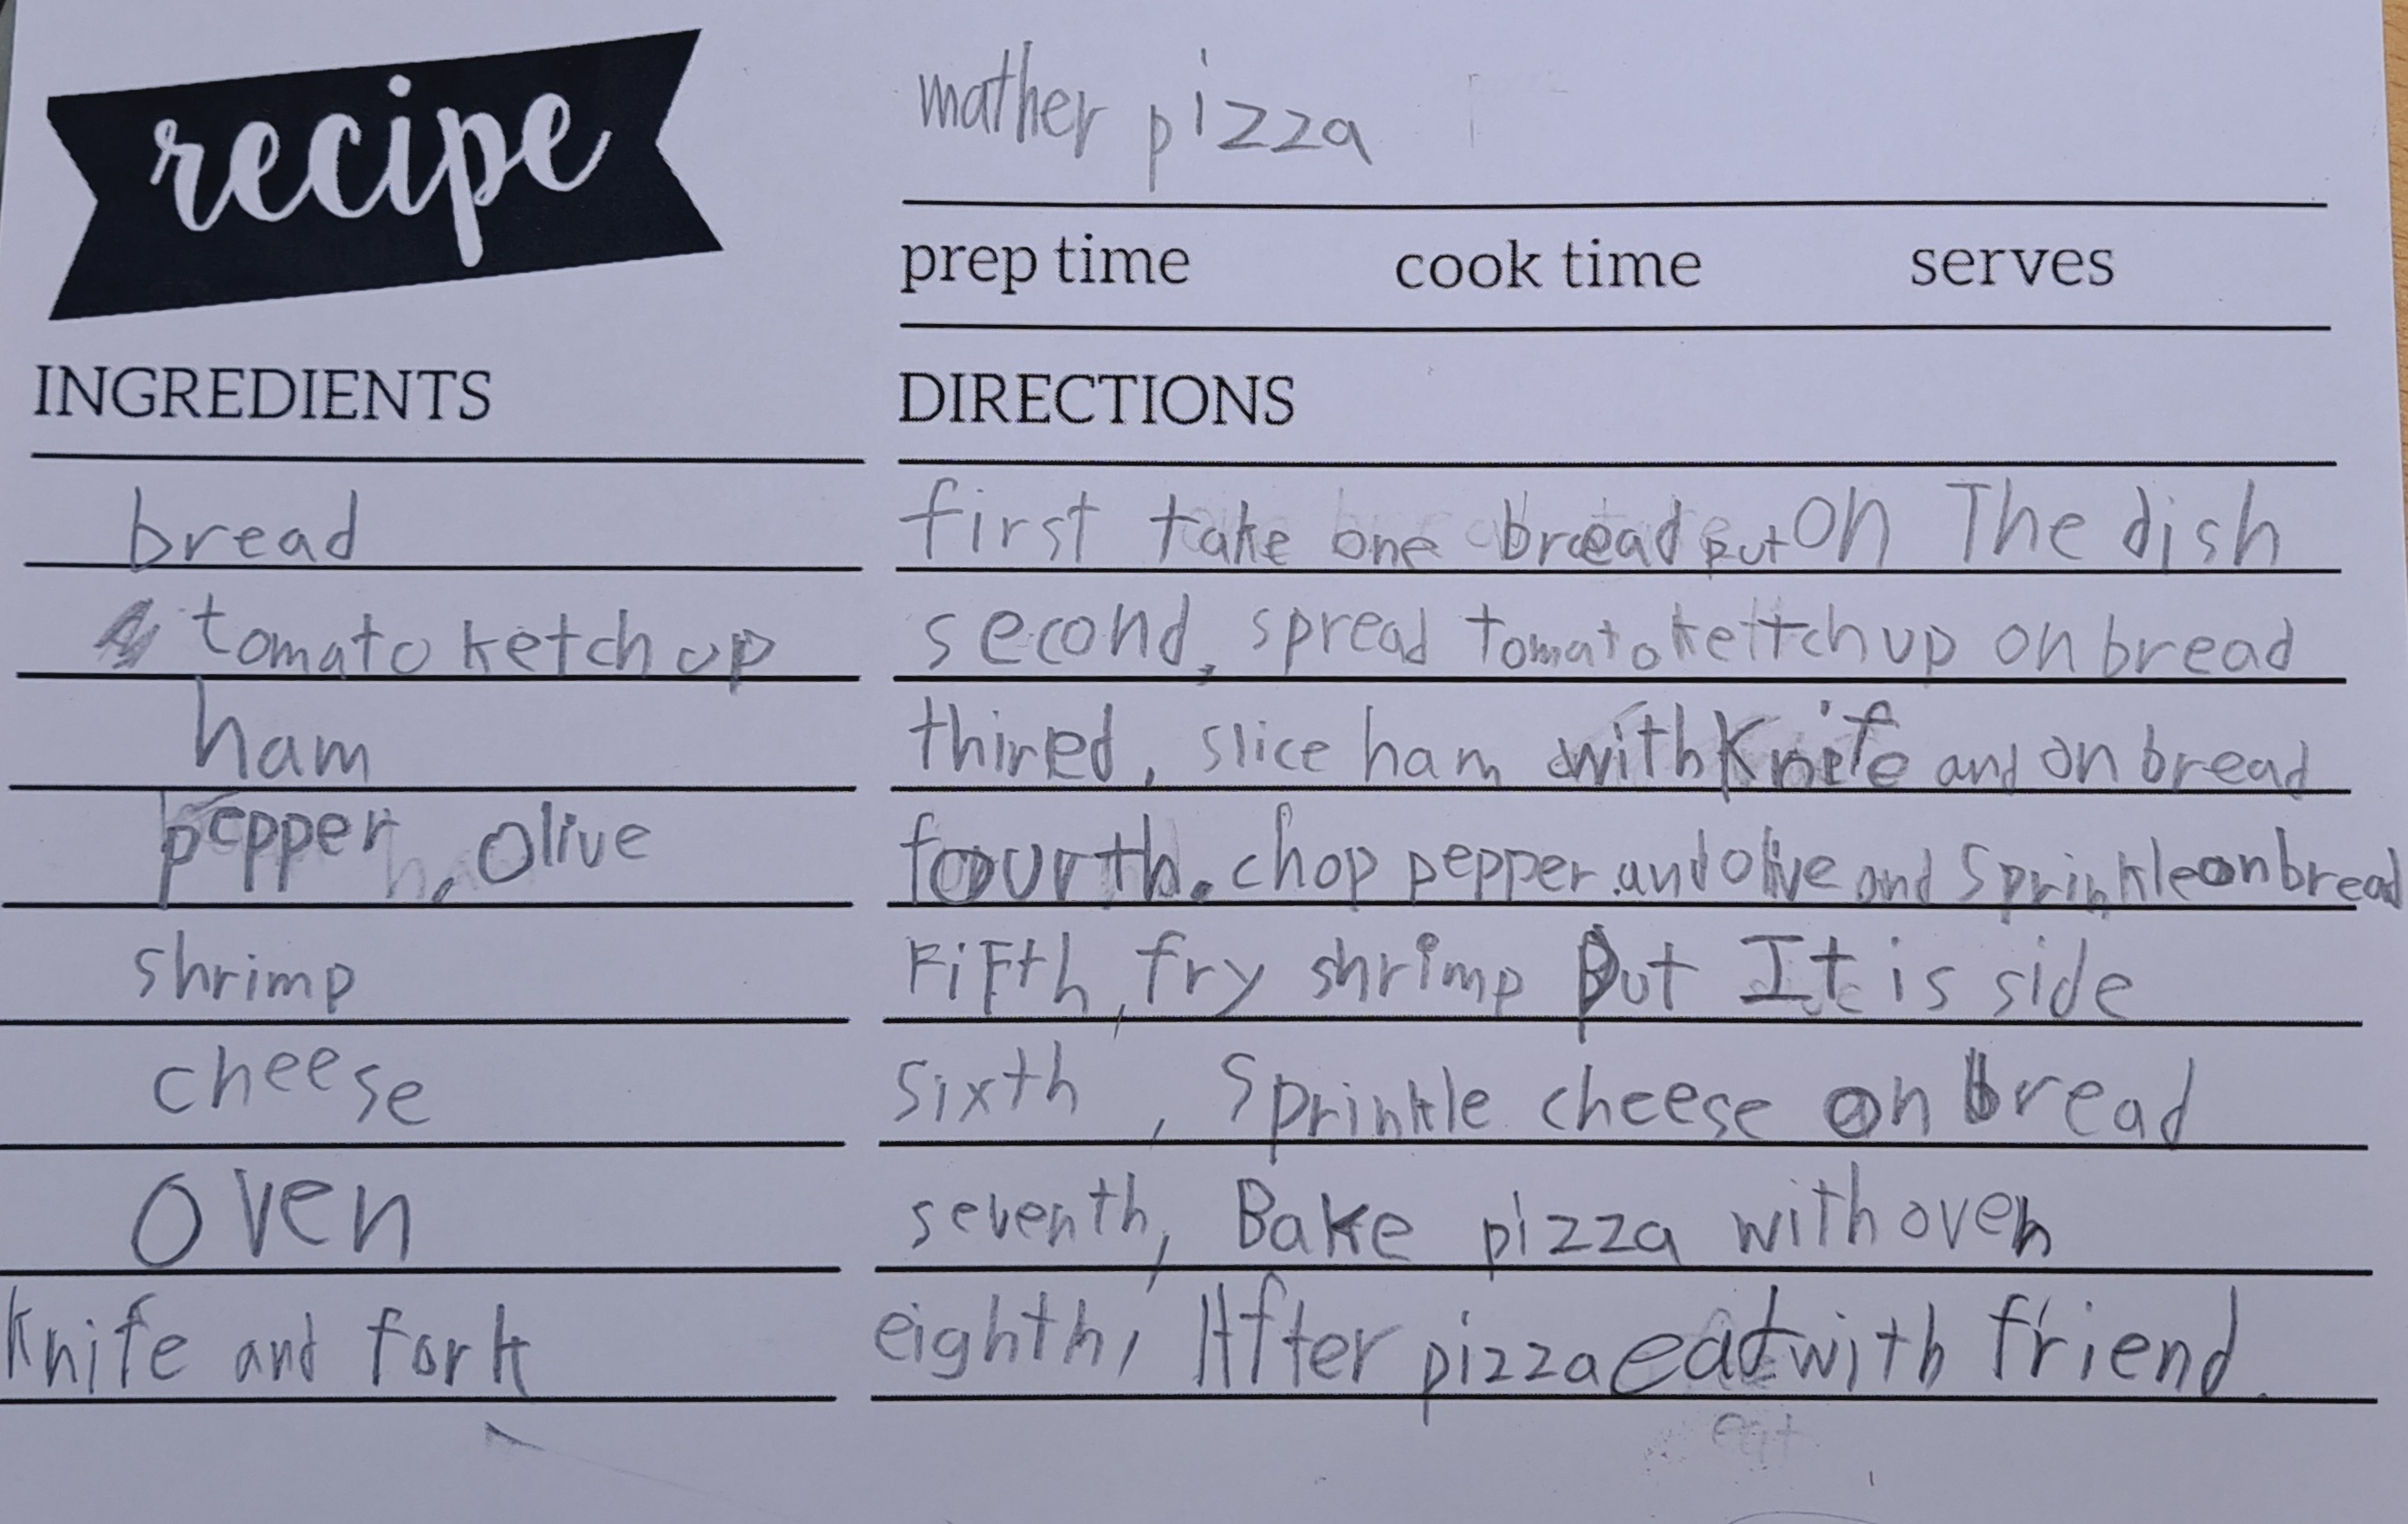 recipe
mather pizza
prep time cook time serves
INGREDIENTS
bread
tomato ketchup
ham
pepper, olive
shrimp
cheese
oven
knife and fork
DIRECTIONS
first take one bread put on The dish
second, spread tomato kettchup on bread
thired, slice ham with Knife and on bread
fourth. chop pepper and olive and Sprinkle on bread
FiFth, fry shrimp But It is side
sixth, Sprinkle cheese on bread
seventh, Bake pizza with oven
eighth, After pizza eat with friend.
eat